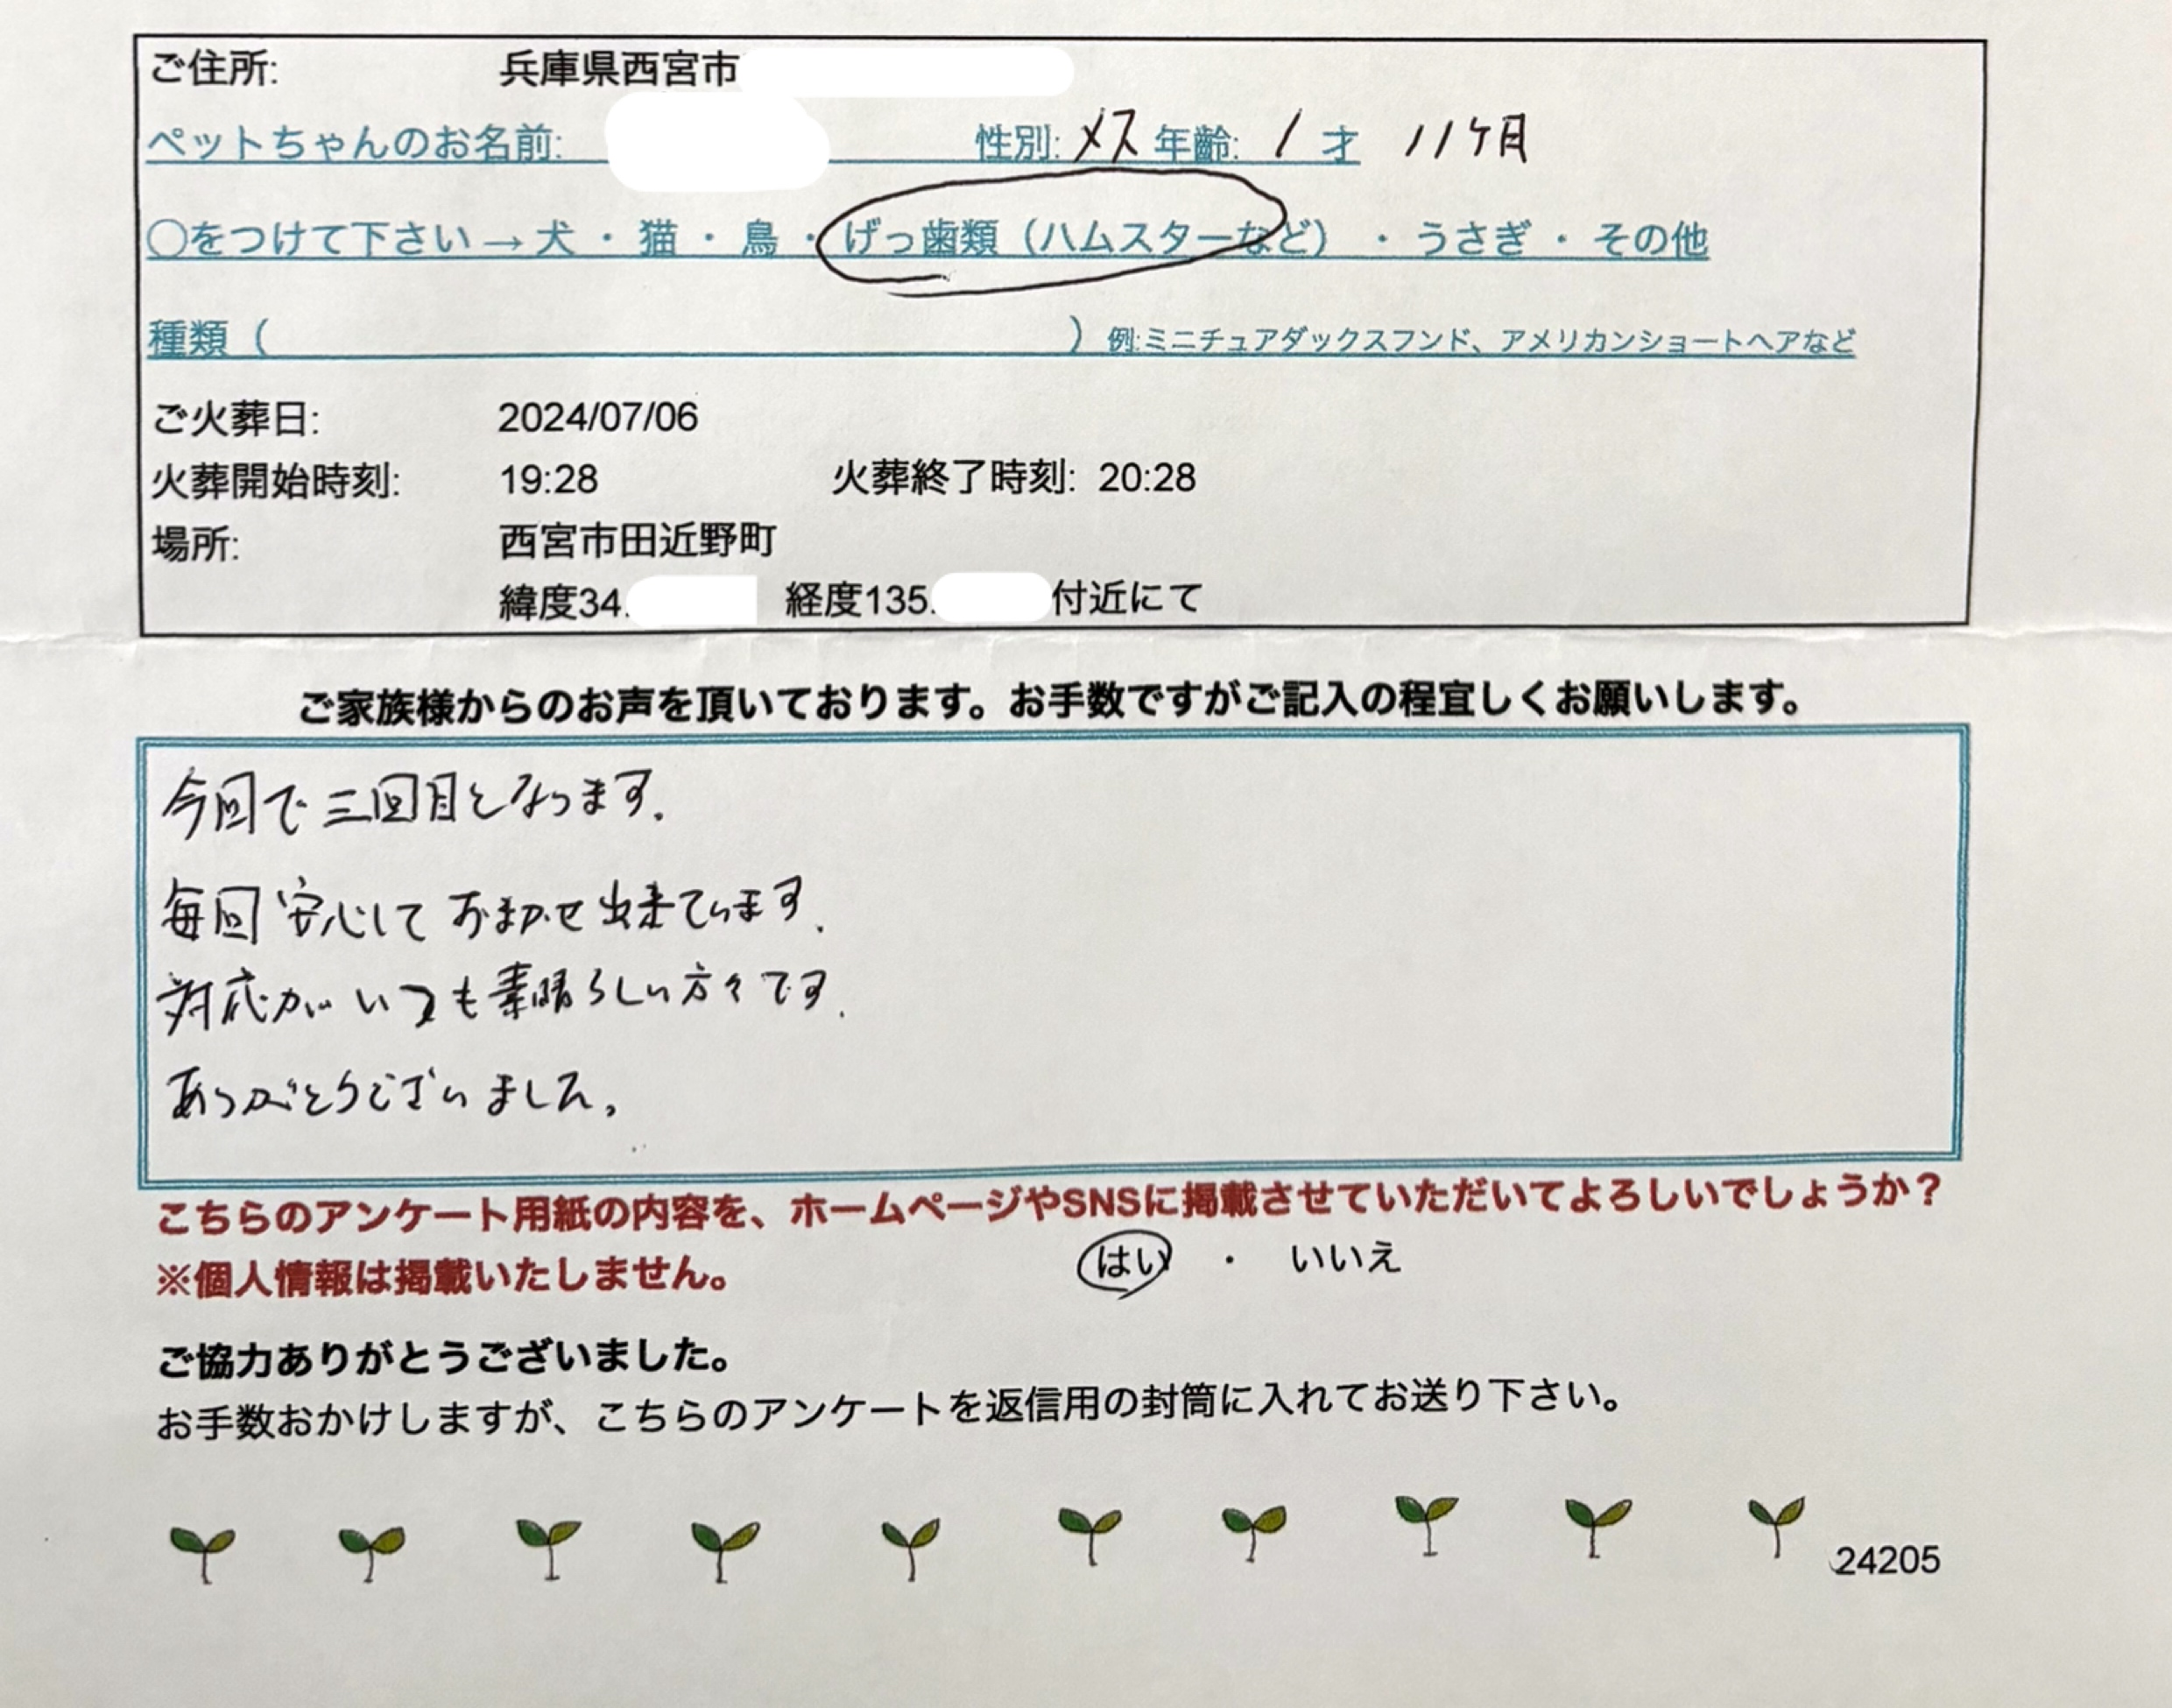 ご住所: 兵庫県西宮市
ペットちゃんのお名前: 性別: メス 年齢: 1 才 11ケ月
○をつけて下さい→犬 ・ 猫 ・ 鳥 ・ げっ歯類（ハムスターなど） ・ うさぎ ・ その他
種類（ ）例:ミニチュアダックスフンド、アメリカンショートヘアなど
ご火葬日: 2024/07/06
火葬開始時刻: 19:28 火葬終了時刻: 20:28
場所: 西宮市田近野町
緯度34. 経度135. 付近にて
ご家族様からのお声を頂いております。お手数ですがご記入の程宜しくお願いします。
今回で三回目となります.
毎回安心しておまかせ出来ています.
対応がいつも素晴らしい方々です.
ありがとうございました。
こちらのアンケート用紙の内容を、ホームページやSNSに掲載させていただいてよろしいでしょうか？
※個人情報は掲載いたしません。 はい ・ いいえ
ご協力ありがとうございました。
お手数おかけしますが、こちらのアンケートを返信用の封筒に入れてお送り下さい。
24205